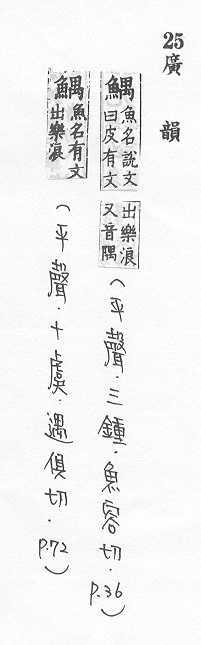 25廣韻
鰅魚名說文曰皮有文出樂浪又音隅(平聲.三鍾.魚容切.P.36)
鰅魚名有文出樂浪(平聲.十虞.遇俱切.P.72)